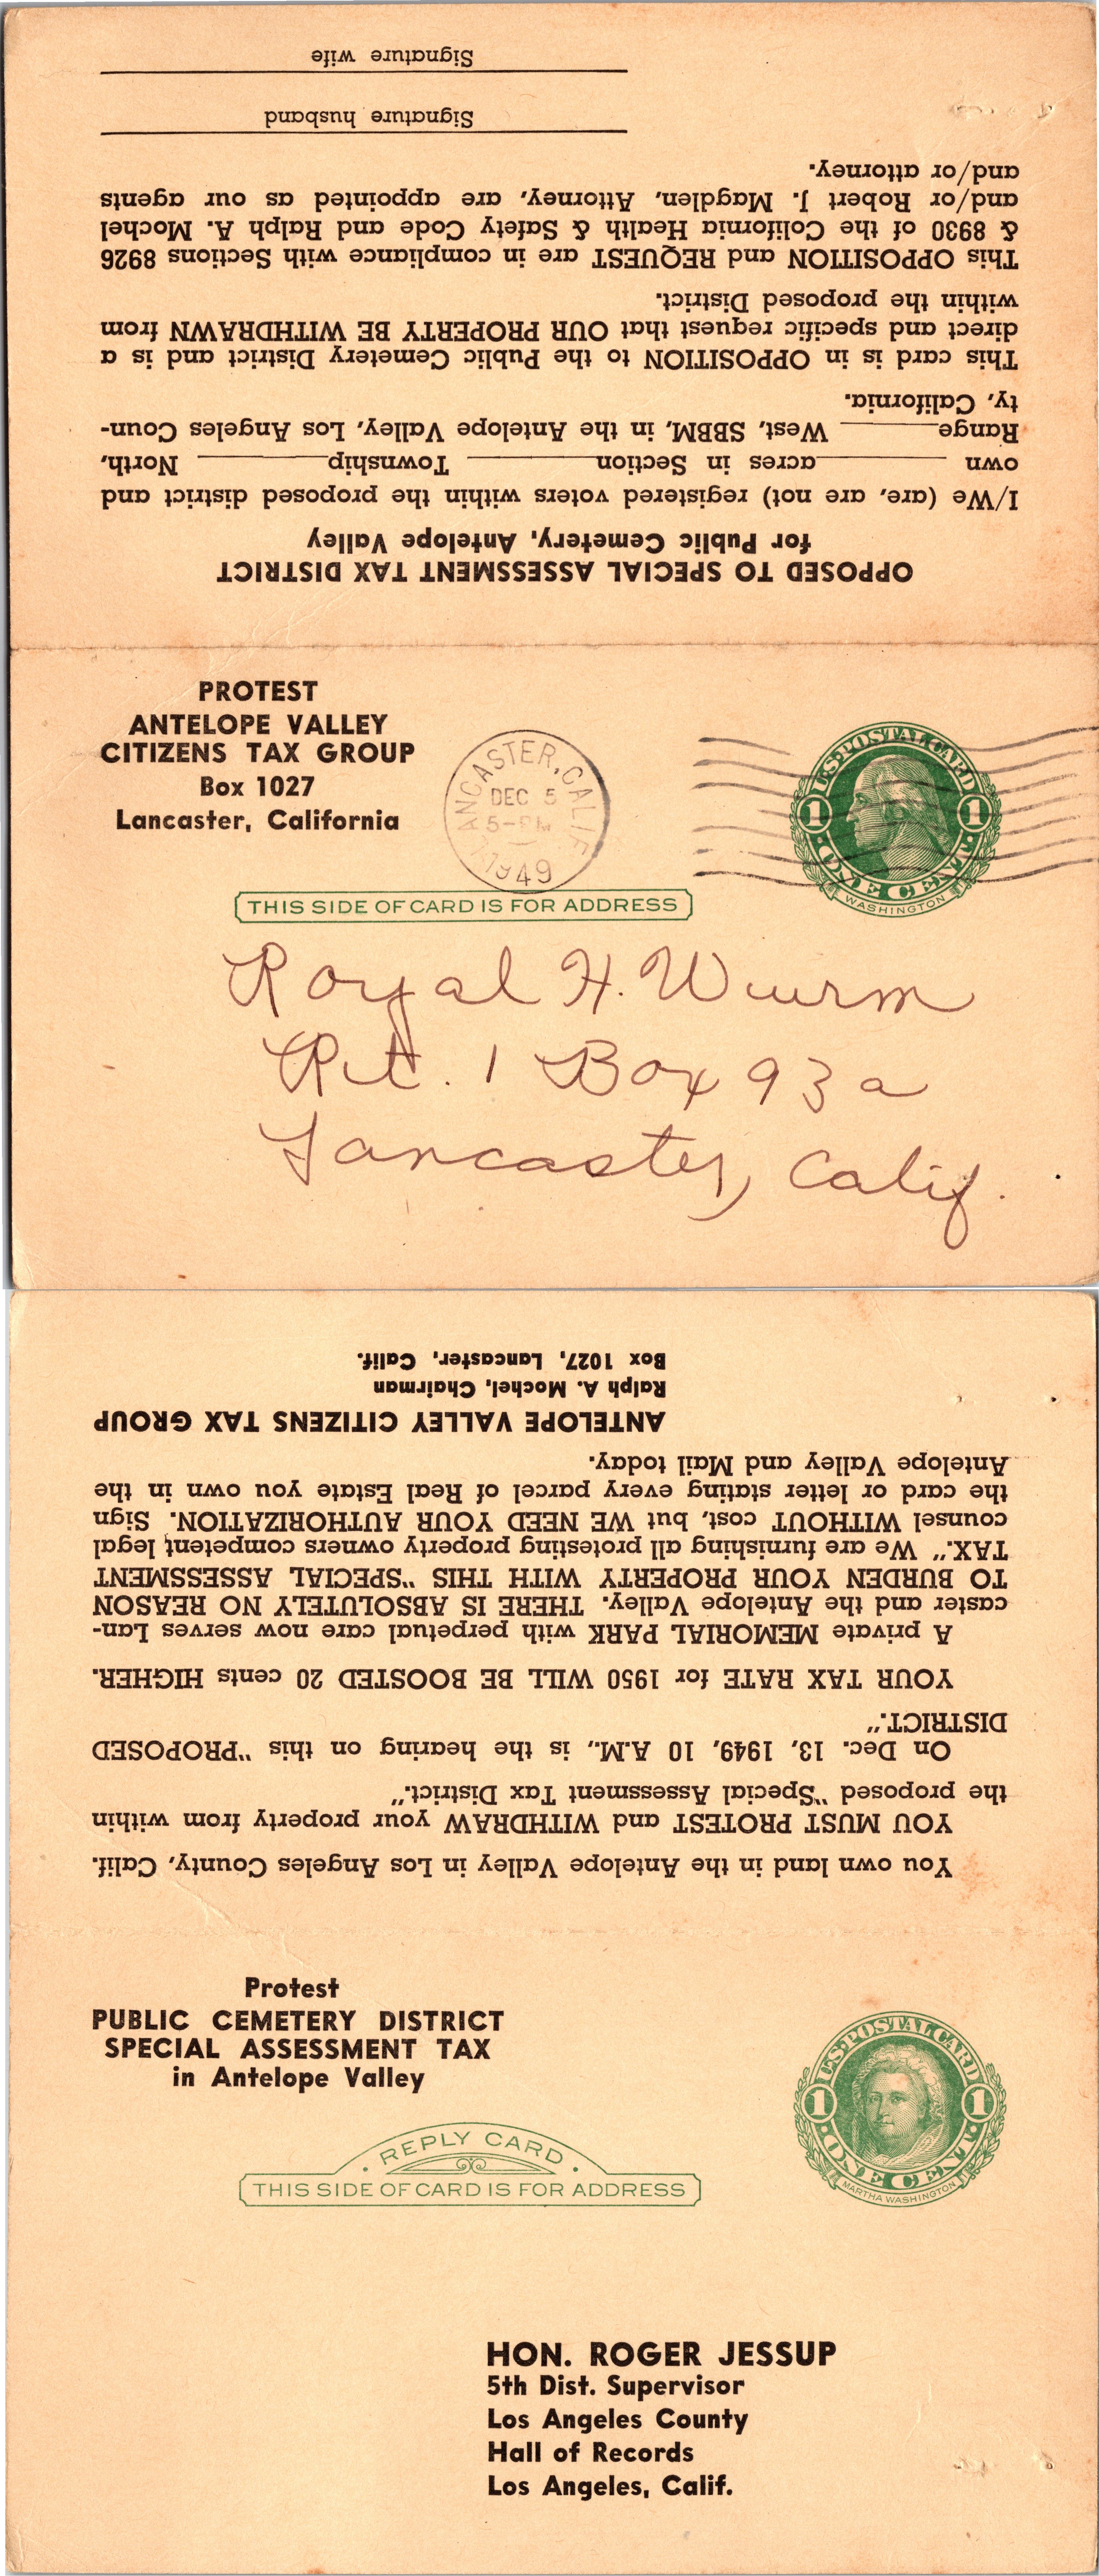 OPPOSED TO SPECIAL ASSESSMENT TAX DISTRICT
for Public Cemetery, Antelope Valley
I/We (are, are not) registered voters within the proposed district and
own ________ acres in Section ________ Township ________ North,
Range ________ West, SBBM, in the Antelope Valley, Los Angeles Coun-
ty, California.
This card is in OPPOSITION to the Public Cemetery District and is a
direct and specific request that OUR PROPERTY BE WITHDRAWN from
within the proposed District.
This OPPOSITION and REQUEST are in compliance with Sections 8926
& 8930 of the California Health & Safety Code and Ralph A. Mochel
and/or Robert J. Magdlen, Attorney, are appointed as our agents
and/or attorney.
Signature husband
Signature wife
PROTEST
ANTELOPE VALLEY
CITIZENS TAX GROUP
Box 1027
Lancaster, California
LANCASTER, CALIF.
DEC 5
5-PM
1949
U.S. POSTAL CARD
1 1
ONE CENT
WASHINGTON
THIS SIDE OF CARD IS FOR ADDRESS
Royal H. Wurm
Rt. 1 Box 93a
Lancaster, Calif.
You own land in the Antelope Valley in Los Angeles County, Calif.
YOU MUST PROTEST and WITHDRAW your property from within
the proposed "Special Assessment Tax District."
On Dec. 13, 1949, 10 A.M., is the hearing on this "PROPOSED
DISTRICT."
YOUR TAX RATE for 1950 WILL BE BOOSTED 20 cents HIGHER.
A private MEMORIAL PARK with perpetual care now serves Lan-
caster and the Antelope Valley. THERE IS ABSOLUTELY NO REASON
TO BURDEN YOUR PROPERTY WITH THIS "SPECIAL ASSESSMENT
TAX." We are furnishing all protesting property owners competent legal
counsel WITHOUT cost, but WE NEED YOUR AUTHORIZATION. Sign
the card or letter stating every parcel of Real Estate you own in the
Antelope Valley and Mail today.
ANTELOPE VALLEY CITIZENS TAX GROUP
Ralph A. Mochel, Chairman
Box 1027, Lancaster, Calif.
Protest
PUBLIC CEMETERY DISTRICT
SPECIAL ASSESSMENT TAX
in Antelope Valley
U.S. POSTAL CARD
1 1
ONE CENT
MARTHA WASHINGTON
REPLY CARD
THIS SIDE OF CARD IS FOR ADDRESS
HON. ROGER JESSUP
5th Dist. Supervisor
Los Angeles County
Hall of Records
Los Angeles, Calif.